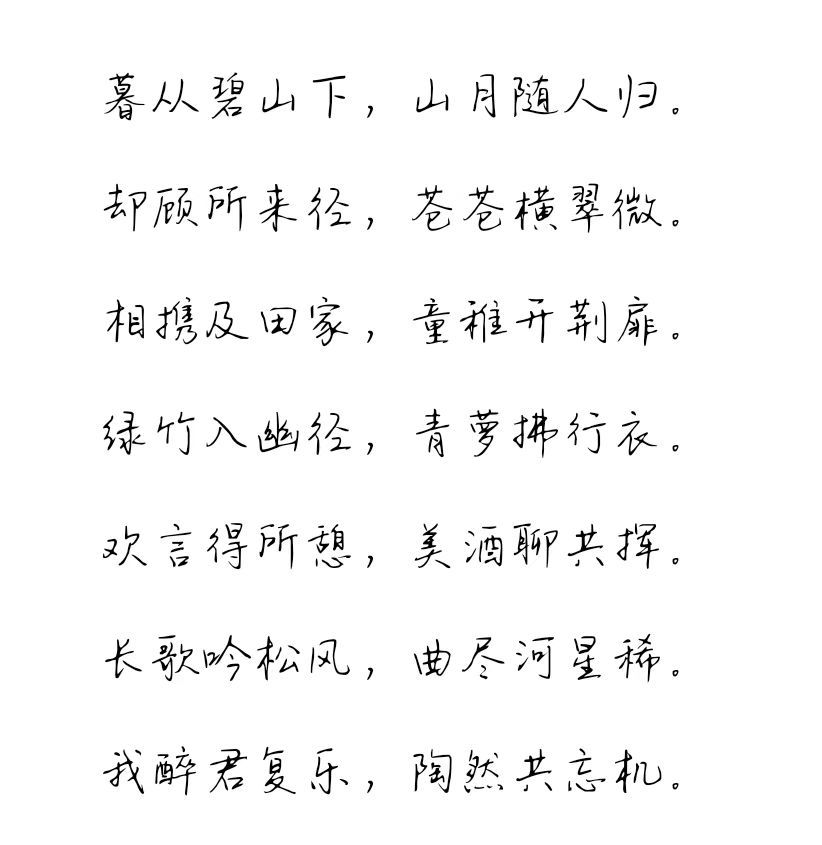 暮从碧山下，山月随人归。
却顾所来径，苍苍横翠微。
相携及田家，童稚开荆扉。
绿竹入幽径，青萝拂行衣。
欢言得所憩，美酒聊共挥。
长歌吟松风，曲尽河星稀。
我醉君复乐，陶然共忘机。